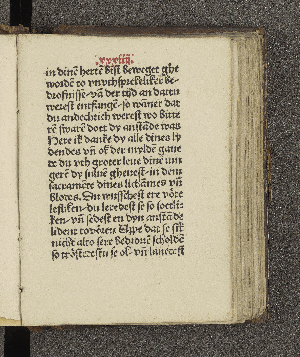 xxxiiij
in dinē herte bist beweget ghe
wordē to vnvthsprekeliker be-
drofnisse- vā der tijd an datu
werest entfangē- so wāner dat
du andechtich werest wo bitte
re sware dott dy anstāde was
Here ik danke dy alle dines ly
dendes vn̄ ok der mylde gaue
te du vth groter leue dinē iun
gerē dy suluē gheuest- in dem
sacramēte dines lichāmes vn̄
blodes. Du wusschest ere vöte
- du leredest se so
ken- vn̄ sedest en dyn anstāde
lident tovörē. Vppe dat se sik
nicht alto sere bedrouē scholdē
so tröstestu se ok- vn̄